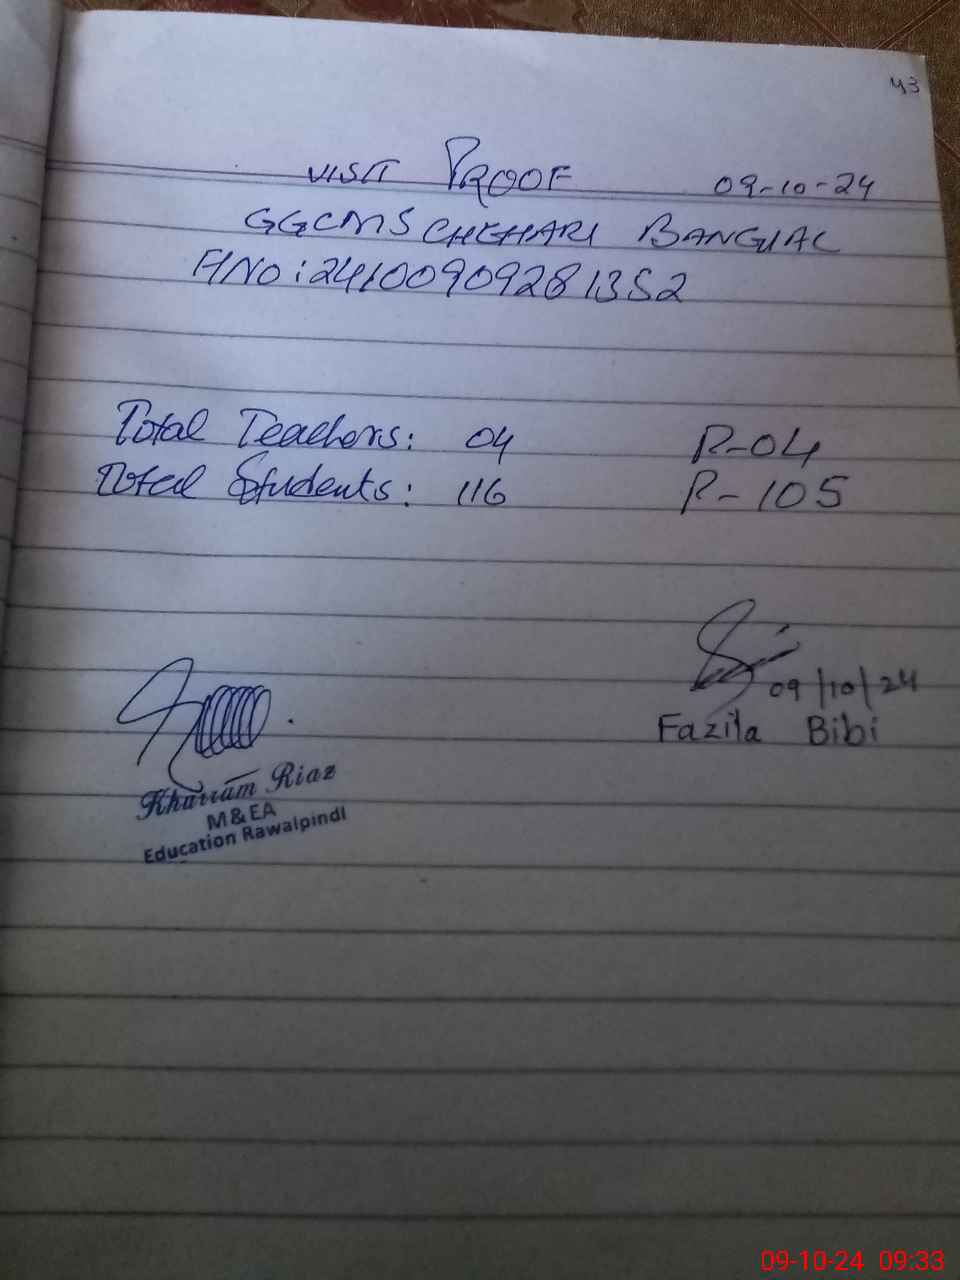 43
VISIT PROOF 09-10-24
GGCMS CHEHARI BANGIAL
FINO: 24100909281352
Total Teachers: 04 P-04
Total Students: 116 P-105
09/10/24
Fazila Bibi
Khurram Riaz
M&EA
Education Rawalpindi
09-10-24 09:33